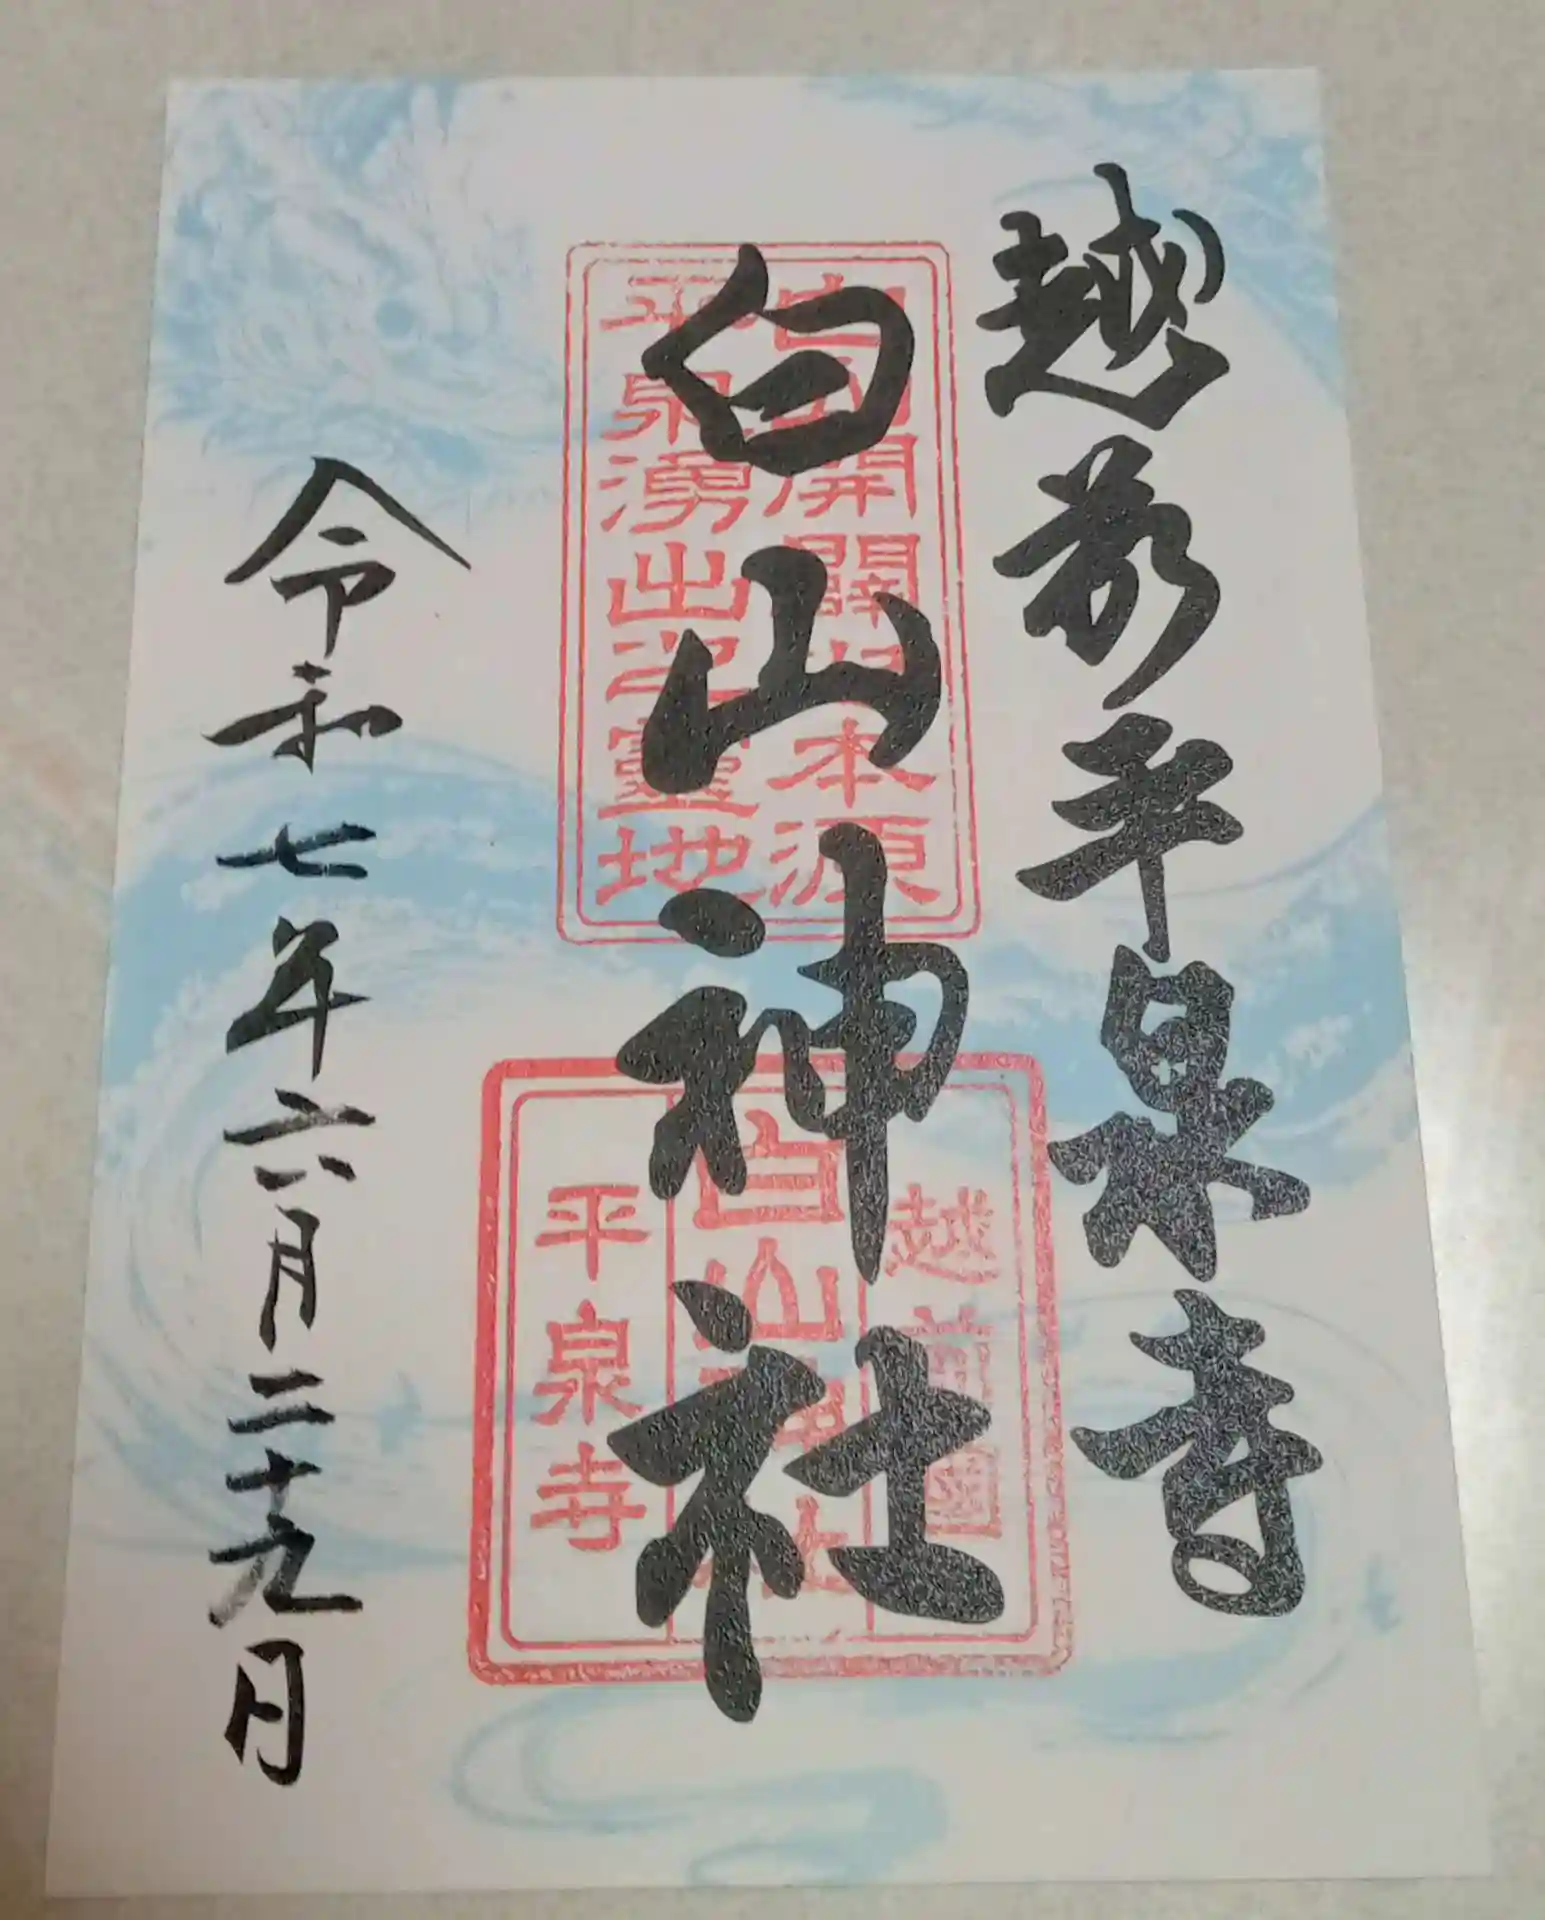 越前平泉寺
白山神社
令和七年六月二十九日
平泉湧出之靈地
本源
越前國
白山神社
平泉寺